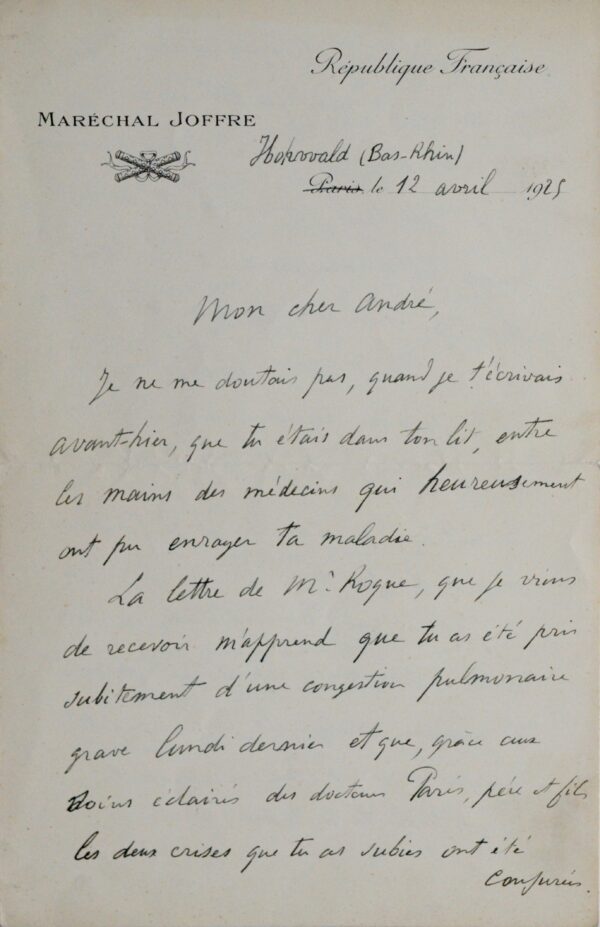 République Française
MARÉCHAL JOFFRE
Hohwald (Bas-Rhin)
Paris, le 12 avril 1925
Mon cher André,
Je ne me doutais pas, quand je t'écrivais
avant-hier, que tu étais dans ton lit, entre
les mains des médecins qui heureusement
ont pu enrayer ta maladie.
La lettre de Mr Roque, que je viens
de recevoir m'apprend que tu as été pris
subitement d'une congestion pulmonaire
grave lundi dernier et que, grâce aux
soins éclairés des docteurs Paris, père et fils
les deux crises que tu as subies ont été
conjurées.